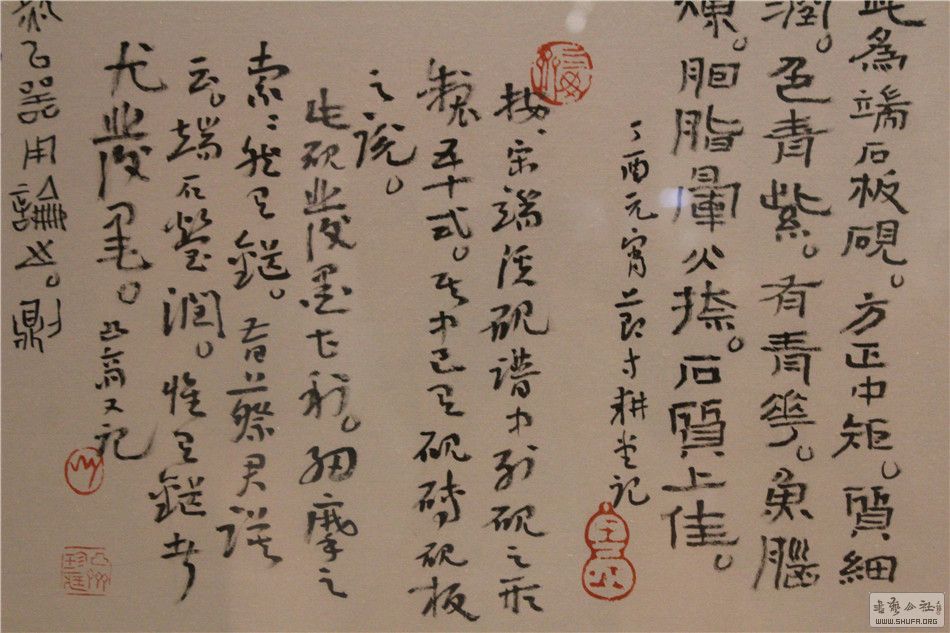 此為端石板硯。方正中矩。質細
潤。色青紫。有青花。魚腦
凍。胭脂暈火捺。石質上佳。
丁酉元宵節寸耕堂記
按宋端溪硯譜中列硯之形
製五十式。其中已有硯磚硯板
之說。
此硯發墨上利。細摩之
索索然有鋩。昔蔡君謨
云。端石瑩潤。惟有鋩者
尤發墨。又記
器用論也。
WWW.SHUFA.ORG